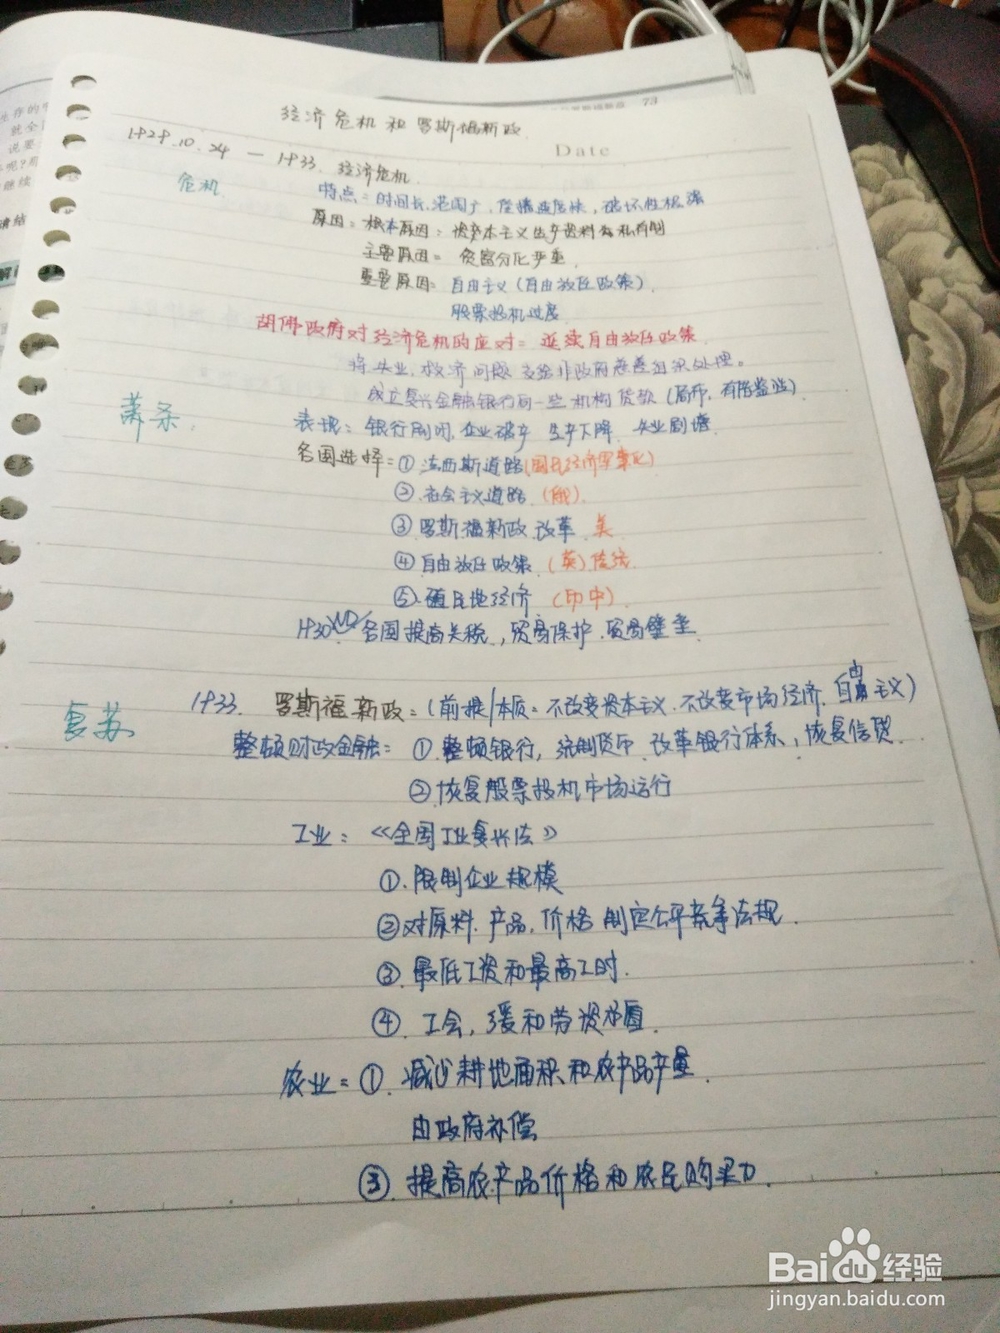 73
经济危机和罗斯福新政.
Date
1929.10.24 — 1933. 经济危机.
危机.
特点=时间长,范围广,传播速度快,破坏性极强
原因=根本原因:资本主义生产资料私有制
主要原因= 贫富分化严重.
重要原因= 自由主义(自由放任政策).
股票投机过度
胡佛政府对经济危机的应对= 延续自由放任政策.
将失业、救济问题交给非政府慈善组织处理。
成立复兴金融银行向一些机构贷款(局部,有偿
萧条.
表现: 银行倒闭,企业破产 生产下降 失业剧增
各国选择=①法西斯道路(国民经济军事化)
②社会主义道路 (俄).
③罗斯福新政 改革 美
④自由放任政策 (英)传统
⑤.殖民地经济 (印中).
1930 各国提高关税,贸易保护.贸易壁垒.
复苏
1933. 罗斯福新政=(前提/本质=不改变资本主义.不改变市场经济.自由主义)
整顿财政金融= ①整顿银行,统制货币.改革银行体系,恢复信贷.
②.恢复股票投机市场运行
工业: 《全国工业复兴法》
①.限制企业规模
②对原料.产品,价格 制定公平竞争法规.
③.最低工资和最高工时.
④.工会,缓和劳资矛盾.
农业=①.减少耕地面积和农产品产量.
由政府补偿
③.提高农产品价格和农民购买力.
Baidu经验
jingyan.baidu.com